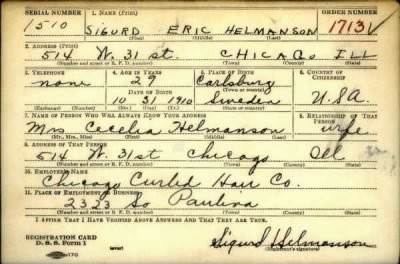 SERIAL NUMBER 1. NAME (Print) ORDER NUMBER
1510 SIGURD ERIC HELMANSON 1713
(First) (Middle) (Last)
2. ADDRESS (Print)
514 W. 31 st. CHICAGO ILL
(Number and street or R. F. D. number) (Town) (County) (State)
3. TELEPHONE 4. AGE IN YEARS 5. PLACE OF BIRTH 6. COUNTRY OF CITIZENSHIP
none 29 Carlsburg
DATE OF BIRTH (Town or county)
10 31 1910 Sweden U.S.A.
(Exchange) (Number) (Mo.) (Day) (Yr.) (State or country)
7. NAME OF PERSON WHO WILL ALWAYS KNOW YOUR ADDRESS 8. RELATIONSHIP OF THAT PERSON
Mrs Cecelia Helmanson wife
(Mr., Mrs., Miss) (First) (Middle) (Last)
9. ADDRESS OF THAT PERSON
514 W. 31st Chicago Ill
(Number and street or R. F. D. number) (Town) (County) (State)
10. EMPLOYER'S NAME
Chicago Curled Hair Co.
11. PLACE OF EMPLOYMENT OR BUSINESS
2323 So Paulina
(Number and street or R. F. D. number) (Town) (County) (State)
I AFFIRM THAT I HAVE VERIFIED ABOVE ANSWERS AND THAT THEY ARE TRUE.
REGISTRATION CARD
D. S. S. Form 1 (over) Sigurd Helmanson
(Registrant's signature)